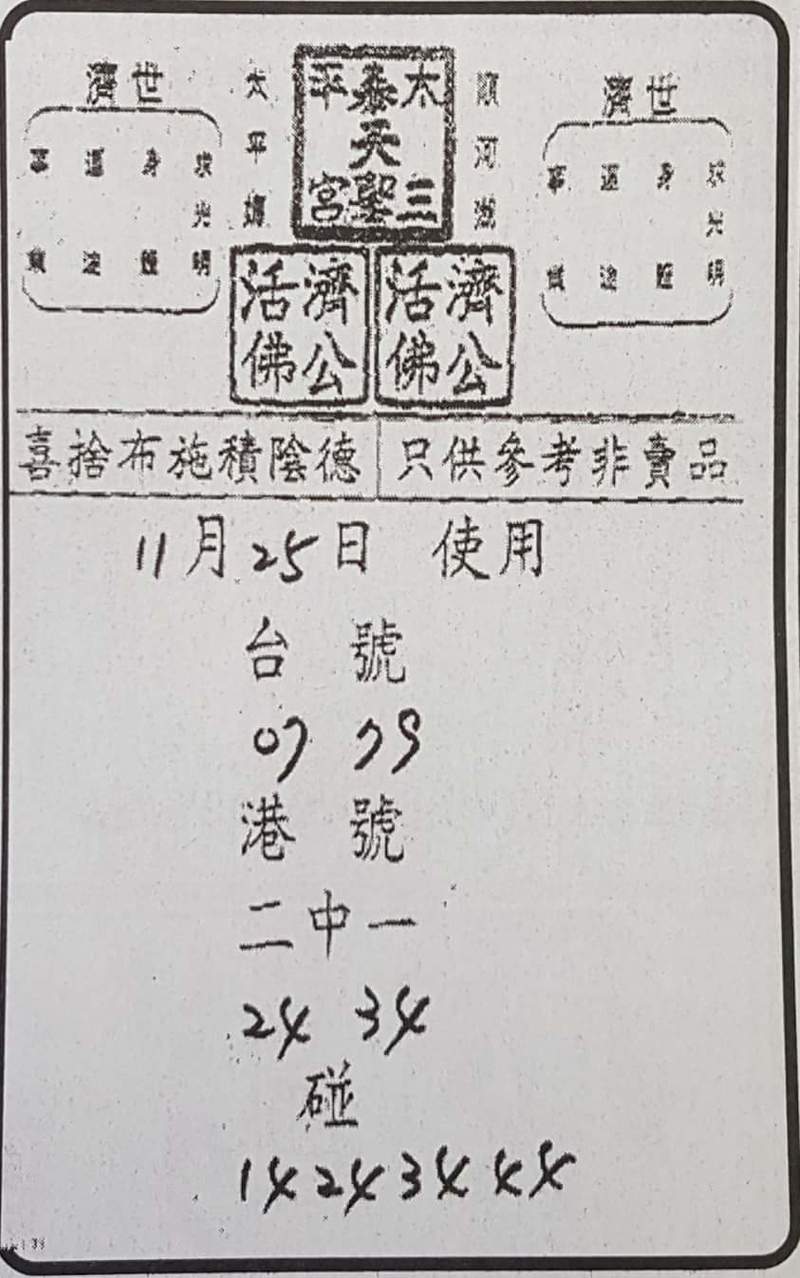 濟世
太平
泰
平泰太
天
宮聖三
順河
濟世
求光明
身
運
事
求光明
身
運
事
活濟
佛公
活濟
佛公
喜捨布施積陰德
只供參考非賣品
11月25日 使用
台號
07 79
港號
二中一
24 34
碰
14 24 34 44